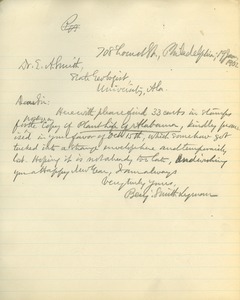 708 Locust St., Philadelphia,
Dr. E. A. Smith,
State Geologist,
University, Ala.
Dear Sir:
Herewith please find 33 cents in stamps
for the copy of Plant Life of Alabama, kindly
in your favor of Oct 15th, which somehow got
tucked into a strange envelope and temporarily
lost. Hoping it is not already too late, and wishing
you a Happy New Year, I am always
Very truly yours,
Benj. Smith Lyman